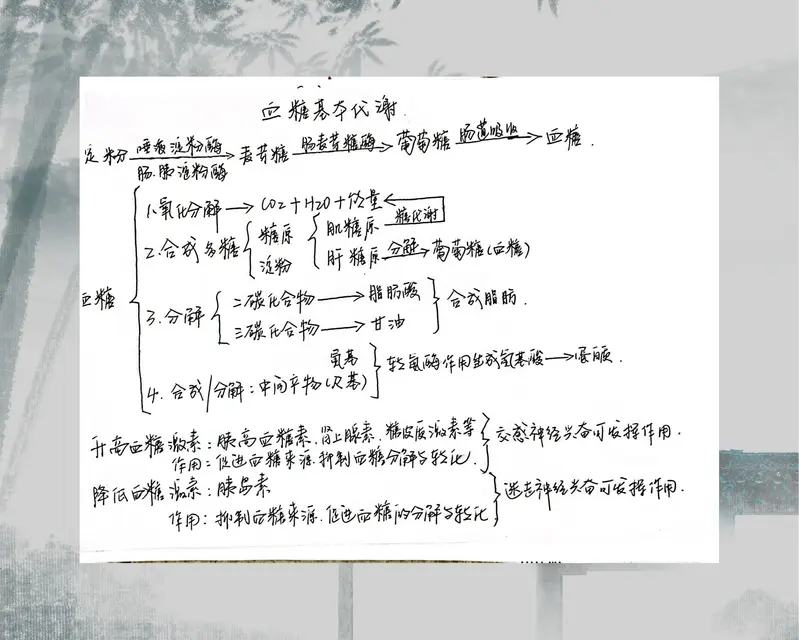 血糖基本代谢.
淀粉 唾液淀粉酶 肠.胰淀粉酶 → 麦芽糖 肠麦芽糖酶 → 葡萄糖 肠道吸收 → 血糖.
血糖
1.氧化分解 → CO2+H2O+能量
2.合成多糖 糖原 淀粉 肌糖原 糖代谢 肝糖原 分解 → 葡萄糖(血糖)
3.分解 二碳化合物 → 脂肪酸 三碳化合物 → 甘油 合成脂肪.
4.合成/分解:中间产物(尺基) 氨基 转氨酶作用生成氨基酸 →
升高血糖激素:胰高血糖素.肾上腺素.糖皮质激素等
作用:促进血糖来源.抑制血糖分解与转化. 交感神经兴奋可发挥作用.
降低血糖激素:胰岛素
作用:抑制血糖来源.促进血糖的分解与转化 迷走神经兴奋可发挥作用.